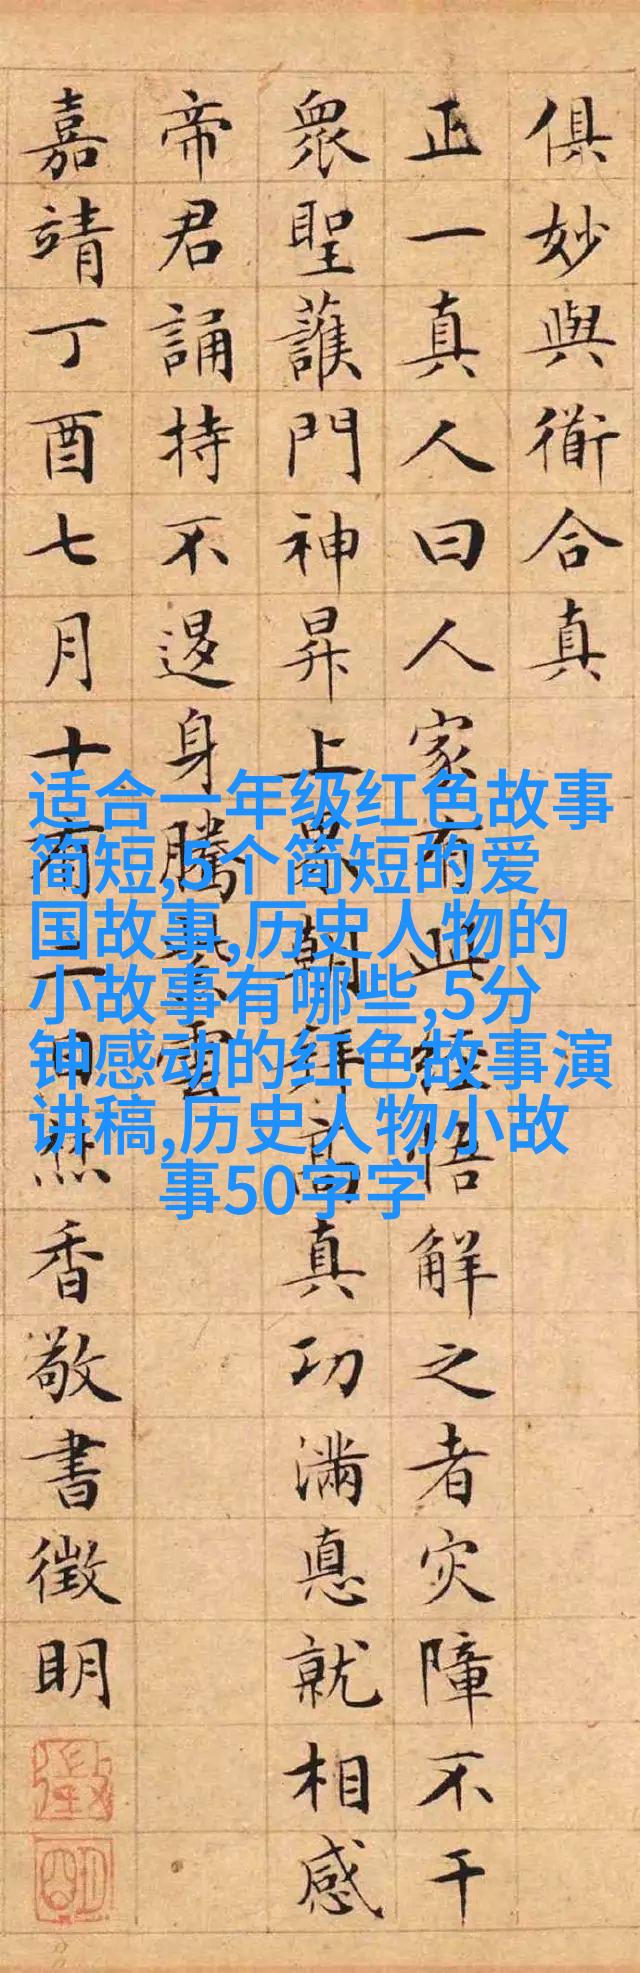 俱妙與衜合真
正一真人曰人家有此經悟解之者灾障不干
眾聖護門神昇上界朝拜高真功滿悳就相感
帝君誦持不退身騰紫雲
嘉靖丁酉七月十有二日焚香敬書徵明
徵
明
适合一年级红色故事
简短,5个简短的爱
国故事,历史人物的
小故事有哪些,5分
钟感动的红色故事演
讲稿,历史人物小故
事50字字